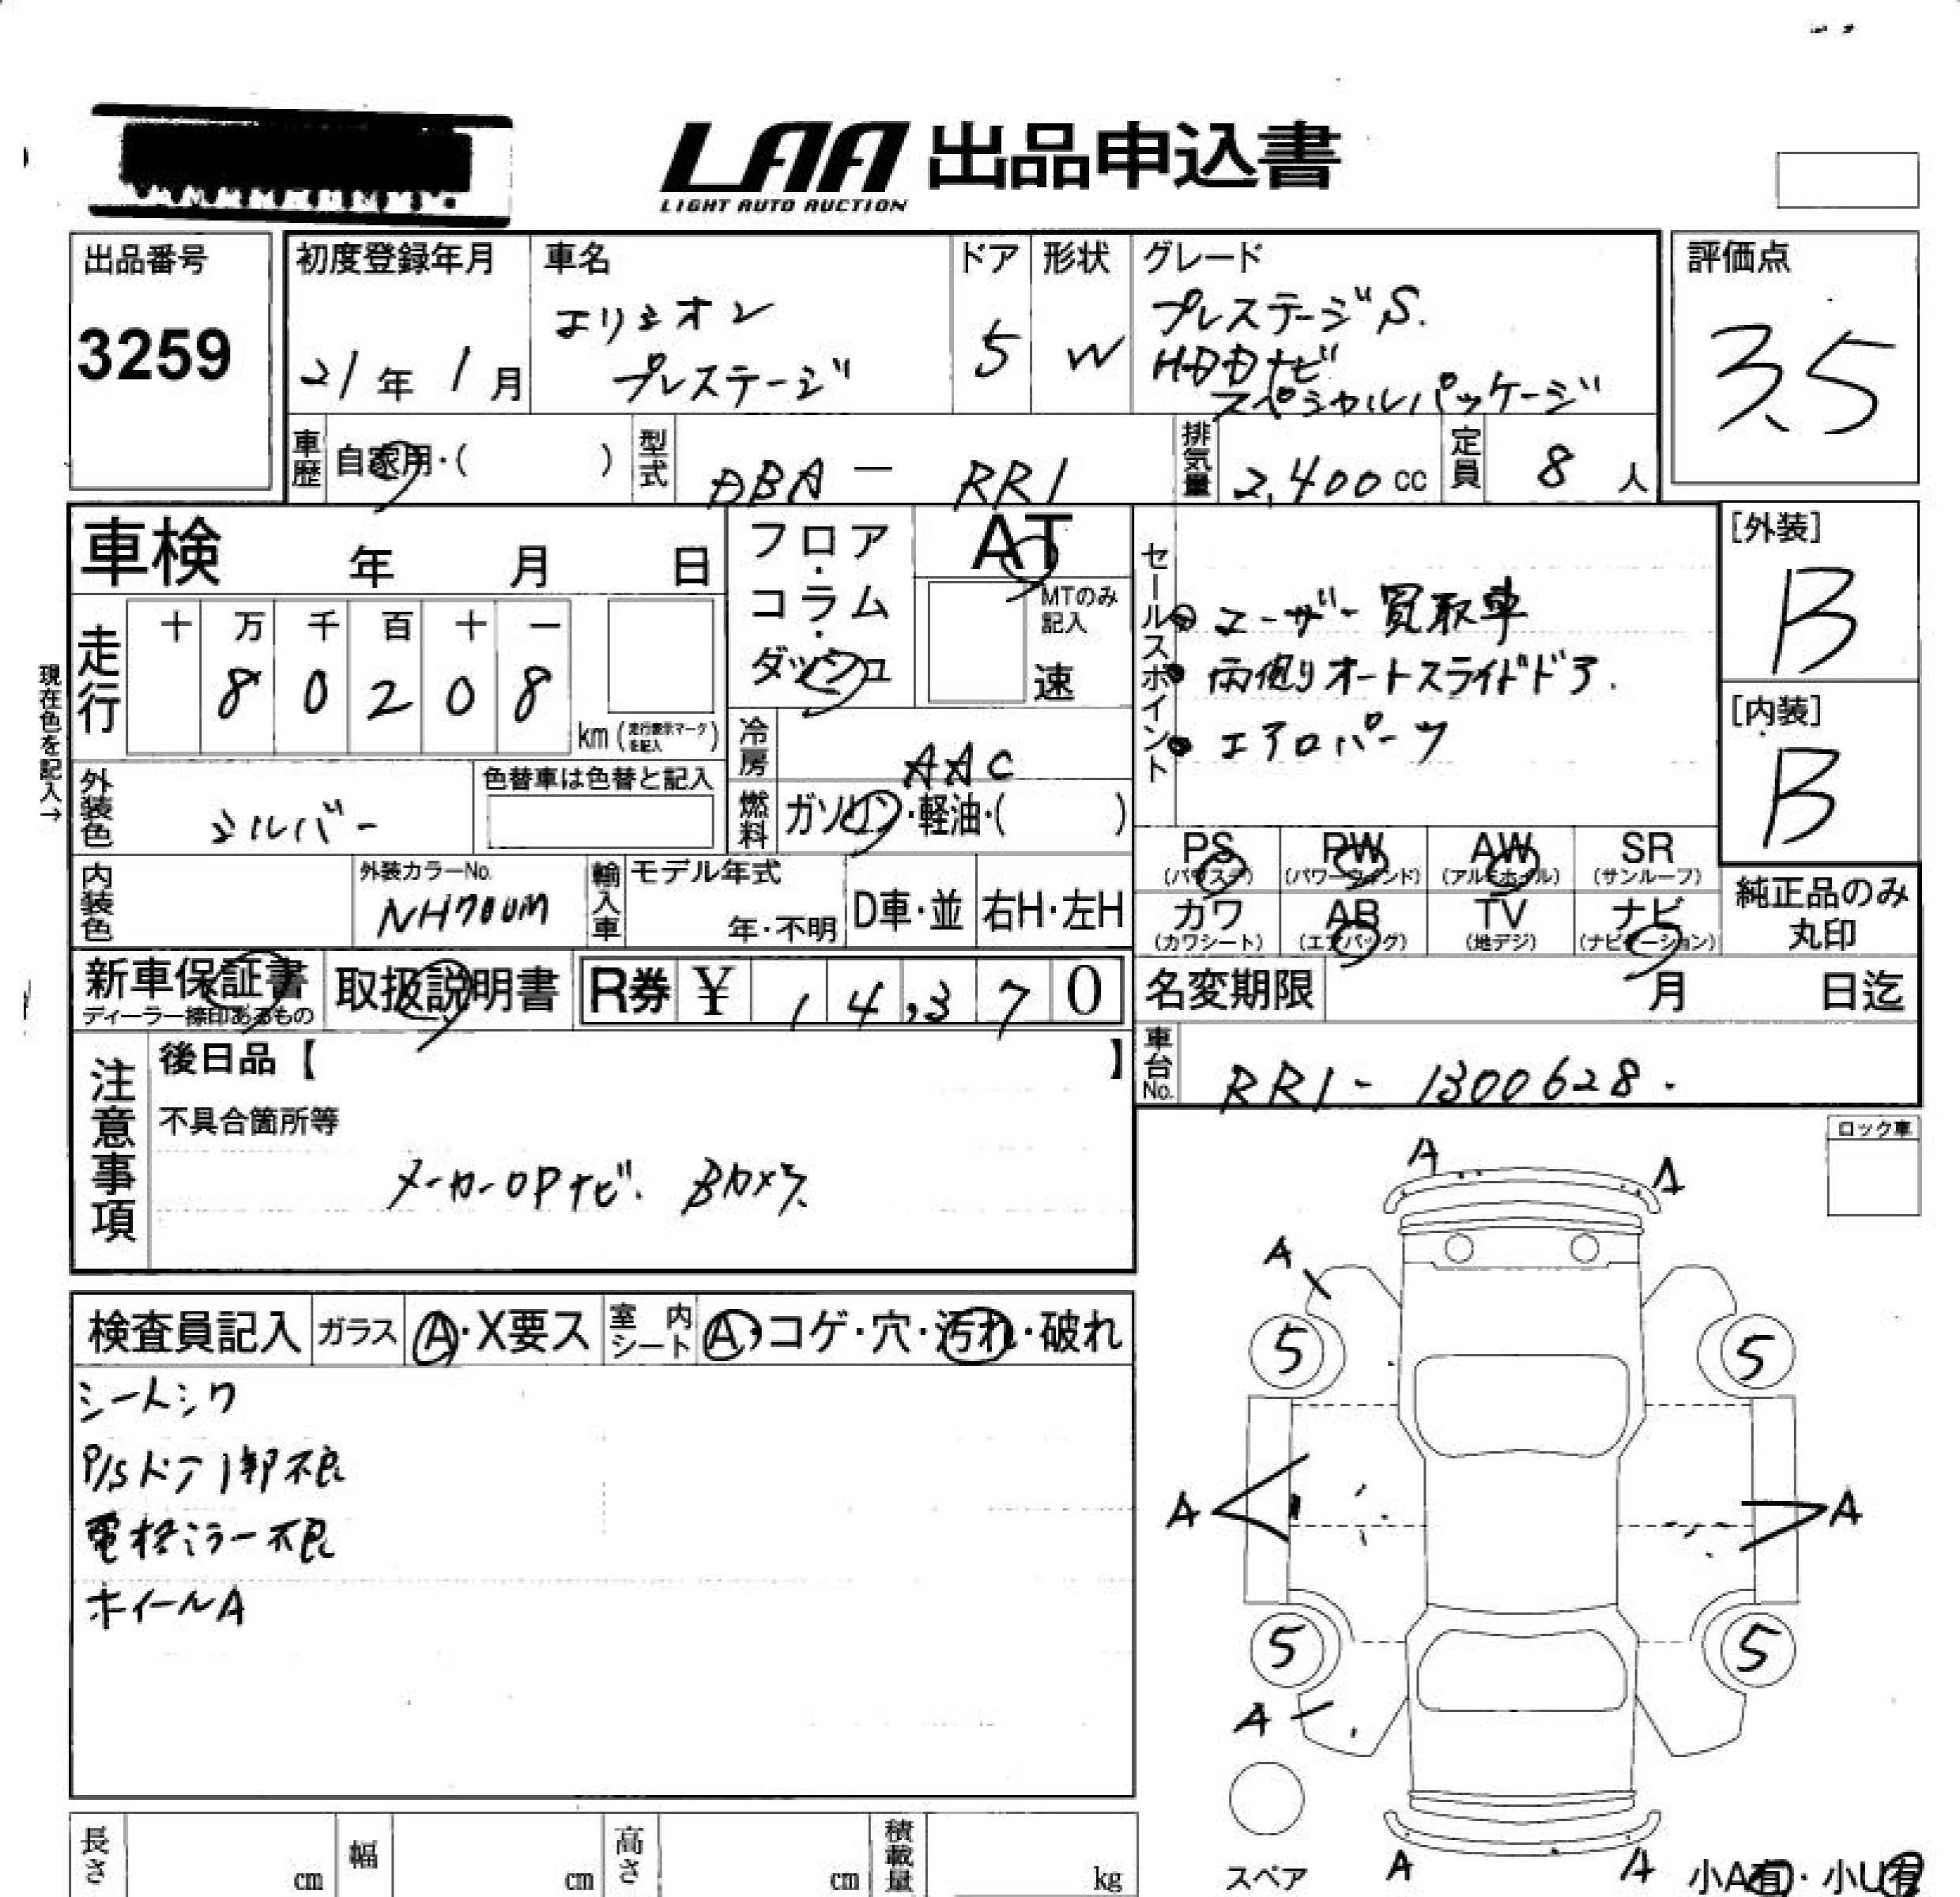 LAA 出品申込書
LIGHT AUTO AUCTION
出品番号
3259
初度登録年月
21年 1月
車名
エリシオン
プレステージ
ドア
5
形状
W
グレード
プレステージS.
HDDナビ
スペシャルパッケージ
評価点
3.5
車歴
自家用・( )
型式
DBA - RR1
排気量
2,400 cc
定員
8 人
車検 年 月 日
フロア・コラム・ダッシュ
AT
MTのみ記入
速
セールスポイント
ユーザー買取車
両側オートスライドドア.
エアロパーツ
[外装]
B
[内装]
B
現在色を記入→
走行
十 万 千 百 十 一
8 0 2 0 8
km (走行表示マークを記入)
冷房
AAC
燃料
ガソリン・軽油・( )
外装色
シルバー
色替車は色替と記入
内装色
外装カラーNo.
NH700M
輸入車
モデル年式
年・不明
D車・並
右H・左H
PS
(パワステ)
PW
(パワーウインド)
AW
(アルミホイル)
SR
(サンルーフ)
カワ
(カワシート)
AB
(エアバッグ)
TV
(地デジ)
ナビ
(ナビゲーション)
純正品のみ
丸印
新車保証書
ディーラー捺印あるもの
取扱説明書
R券 ¥ 14,370
名変期限 月 日迄
車台No.
RR1- 1300628.
注意事項
後日品【 】
不具合箇所等
メーカーOPナビ. Bカメラ.
ロック車
検査員記入
ガラス
A・X要ス
室内シート
A・コゲ・穴・汚れ・破れ
シートシワ
P/Sドア1部不良
電格ミラー不良
ホイールA
A A
A
5 5
A A
5 5
A
スペア
A A
小A有・小U有
長さ cm
幅 cm
高さ cm
積載量 kg